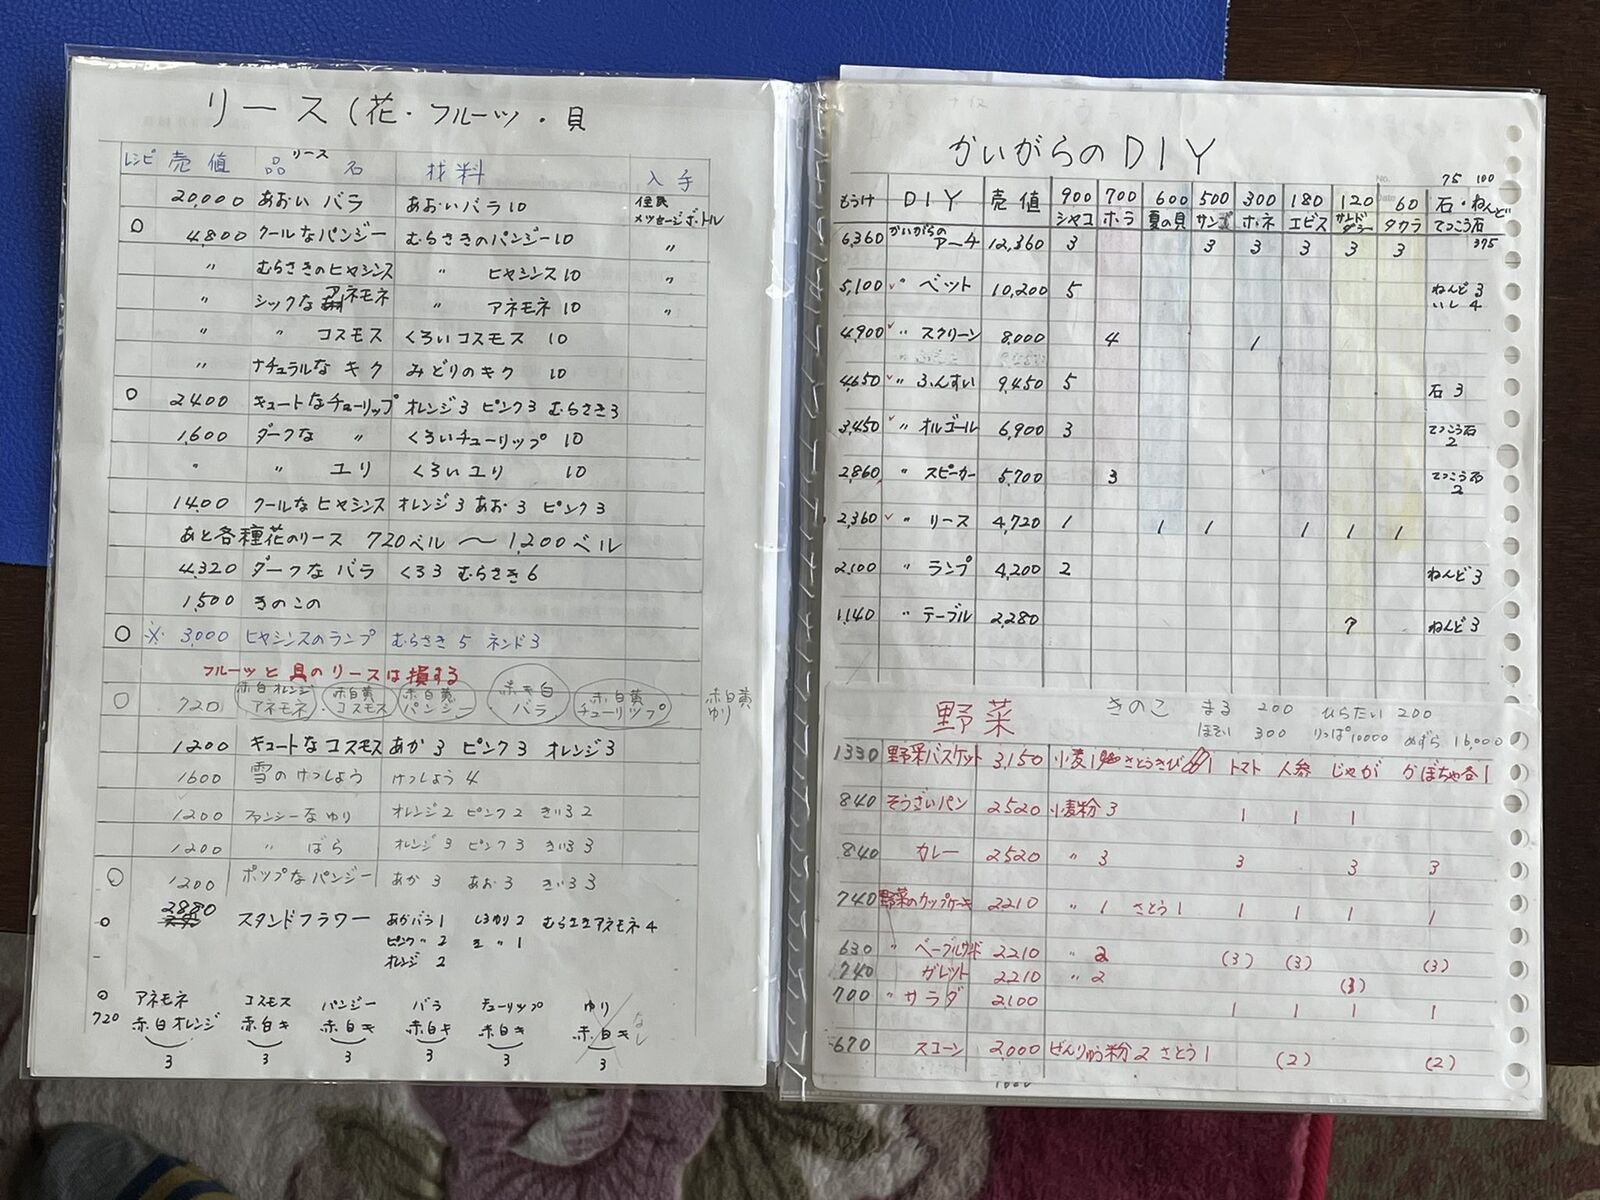 リース(花・フルーツ・貝
レシピ 売値 品リース名 材料 入手
20,000 あおい バラ あおいバラ10 住民 メッセージボトル
○ 4,800 クールなパンジー むらさきのパンジー10 〃
〃 むらさきのヒヤシンス 〃 ヒヤシンス10 〃
〃 シックなアネモネ 〃 アネモネ10 〃
〃 〃 コスモス くろいコスモス 10
〃 ナチュラルな キク みどりのキク 10
○ 2400 キュートなチューリップ オレンジ3 ピンク3 むらさき3
1,600 ダークな 〃 くろいチューリップ 10
〃 〃 ユリ くろいユリ 10
1400 クールなヒヤシンス オレンジ3 あお3 ピンク3
あと各種花のリース 720ベル 〜 1,200ベル
4,320 ダークな バラ くろ3 むらさき6
1,500 きのこの
○ ※ 3,000 ヒヤシンスのランプ むらさき5 ネンド3
フルーツと貝のリースは損する
○ 720 赤白オレンジアネモネ・赤白黄コスモス 赤白黄パンジー 赤キ白バラ 赤白黄チューリップ 赤白黄ゆり
1200 キュートなコスモス あか3 ピンク3 オレンジ3
1600 雪のけっしょう けっしょう4
1200 ファンシーなゆり オレンジ2 ピンク2 きいろ2
1200 〃 ばら オレンジ3 ピンク3 きいろ3
○ 1200 ポップなパンジー あか3 あお3 きいろ3
○ 2880 スタンドフラワー あかバラ1 しろゆり2 むらさきアネモネ4
ピンク〃2 キ〃1
オレンジ2
○ アネモネ コスモス パンジー バラ チューリップ ゆり
720 赤白オレンジ 赤白キ 赤白キ 赤白キ 赤白キ 赤白キ なし
3 3 3 3 3 3
かいがらのDIY
75 100
もうけ DIY 売値 900 700 600 500 300 180 120 60 石・ねんど
シャコ ホラ 夏の貝 サンゴ ホネ エビス サンドダラー タカラ てっこう石
375
6,360 かいがらのアーチ 12,360 3 3 3 3 3 3
5,100 〃 ベット 10,200 5 ねんど3 いし4
4,900 〃 スクリーン 8,000 4 1
4,650 〃 ふんすい 9,450 5 石3
3,450 〃 オルゴール 6,900 3 てっこう石2
2,860 〃 スピーカー 5,700 3 てっこう石2
2,360 〃 リース 4,720 1 1 1 1 1 1
2,100 〃 ランプ 4,200 2 ねんど3
1,140 〃 テーブル 2,280 7 ねんど3
野菜
きのこ まる 200 ひらたい 200
ほそい 300 りっぱ10000 めずら 16,000
1330 野菜バスケット 3,150 小麦1 さとうきび1 トマト 人参 じゃが かぼちゃ各1
840 そうざいパン 2520 小麦粉3 1 1 1
840 カレー 2520 〃3 3 3 3
740 野菜のカップケーキ 2210 〃1 さとう1 1 1 1 1
630 〃 ベーグルサンド 2210 〃2 (3) (3) (3)
740 ガレット 2210 〃2 (3)
700 〃サラダ 2,100 1 1 1 1
670 スコーン 2,000 ぜんりゅう粉2 さとう1 (2) (2)